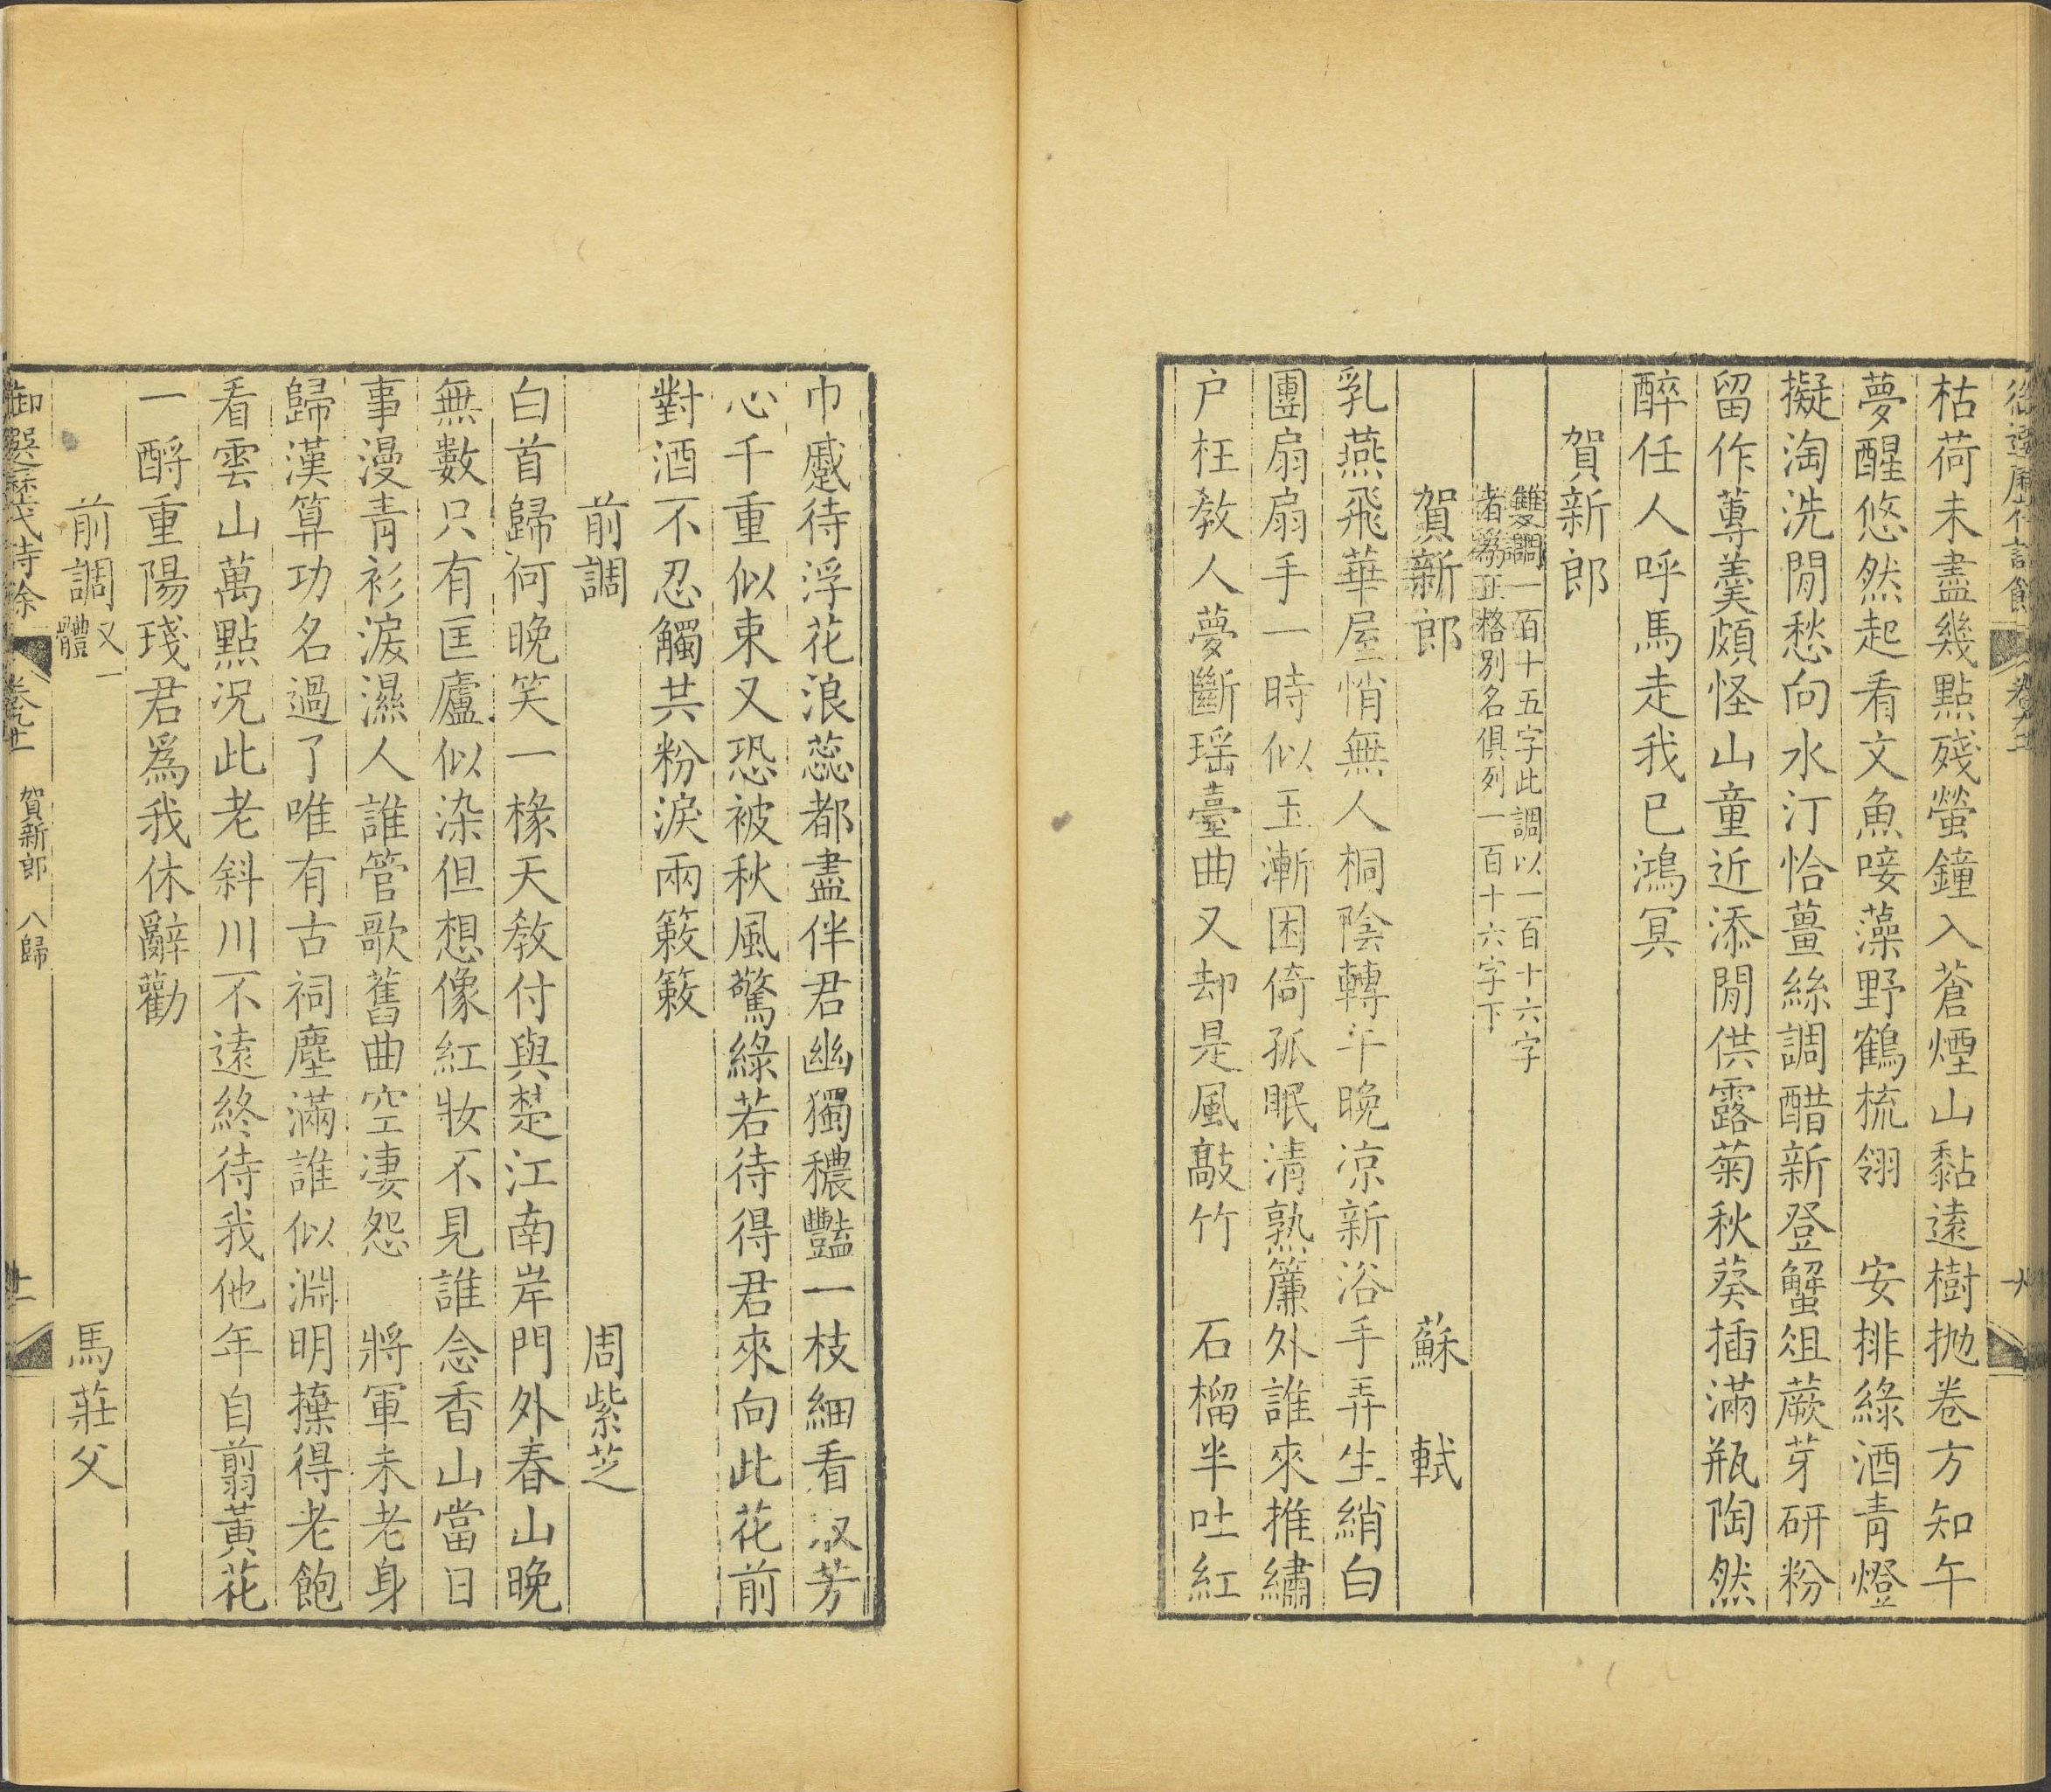 枯荷未盡幾點殘螢鐘入蒼煙山黏遠樹拋卷方知午
夢醒悠然起看文魚唼藻野鶴梳翎　安排綠酒青燈
擬淘洗閒愁向水汀恰薑絲調醋新登蟹俎蕨芽研粉
留作蓴羹頗怪山童近添閒供露菊秋葵插滿瓶陶然
醉任人呼馬走我已鴻冥
賀新郎
雙調一百十五字此調以一百十六字
者為正格別名俱列一百十六字下
賀新郎　蘇軾
乳燕飛華屋悄無人桐陰轉午晚涼新浴手弄生綃白
團扇扇手一時似玉漸困倚孤眠清熟簾外誰來推繡
户枉教人夢斷瑤臺曲又却是風敲竹　石榴半吐紅
巾蹙待浮花浪蕊都盡伴君幽獨穠豔一枝細看取芳
心千重似束又恐被秋風驚綠若待得君來向此花前
對酒不忍觸共粉淚兩簌簌
前調　周紫芝
白首歸何晚笑一椽天教付與楚江南岸門外春山晚
無數只有匡廬似染但想像紅妝不見誰念香山當日
事漫青衫淚濕人誰管歌舊曲空凄怨　將軍未老身
歸漢算功名過了唯有古祠塵滿誰似淵明擽得老飽
看雲山萬點况此老斜川不遠終待我他年自翦黃花
一酹重陽琖君為我休辭勸
前調又一體　馬莊父
御選歷代詩餘　卷九十二　賀新郎　八歸　十一